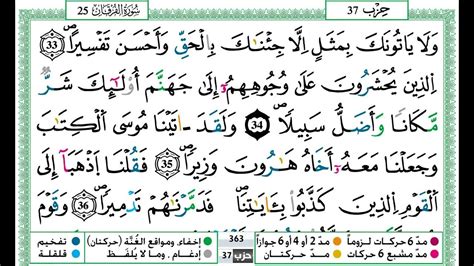 حِزْب 37
سُورَةُ الفُرْقَان 25
وَلَا يَاتُونَكَ بِمَثَلٍ اِلَّا جِئْنَٰكَ بِالْحَقِّ وَأَحْسَنَ تَفْسِيراً 33
اَ۬لذِينَ يُحْشَرُونَ عَلَىٰ وُجُوهِهِمُۥٓ إِلَىٰ جَهَنَّمَ أُوْلَٰٓئِكَ شَرٌّ
مَّكَاناً وَأَضَلُّ سَبِيلاً 34 وَلَقَدَ اٰتَيْنَا مُوسَى اَ۬لْكِتَٰبَ
وَجَعَلْنَا مَعَهُۥٓ أَخَاهُ هَٰرُونَ وَزِيراً 35 فَقُلْنَا اَ۪ذْهَبَآ إِلَى
اَ۬لْقَوْمِ اِ۬لذِينَ كَذَّبُواْ بِـَٔايَٰتِنَا فَدَمَّرْنَٰهُمْ تَدْمِيراً 36 وَقَوْمَ
مدّ 6 حركات لزوماً مدّ 2 أو 4 أو 6 جوازاً إخفاء، ومواقع الغُنَّة (حركتان) تفخيم
مدّ مشبع 6 حركات مدّ حركتان إدغام، وما لا يُلفَظ قلقلة
363
حزب 37